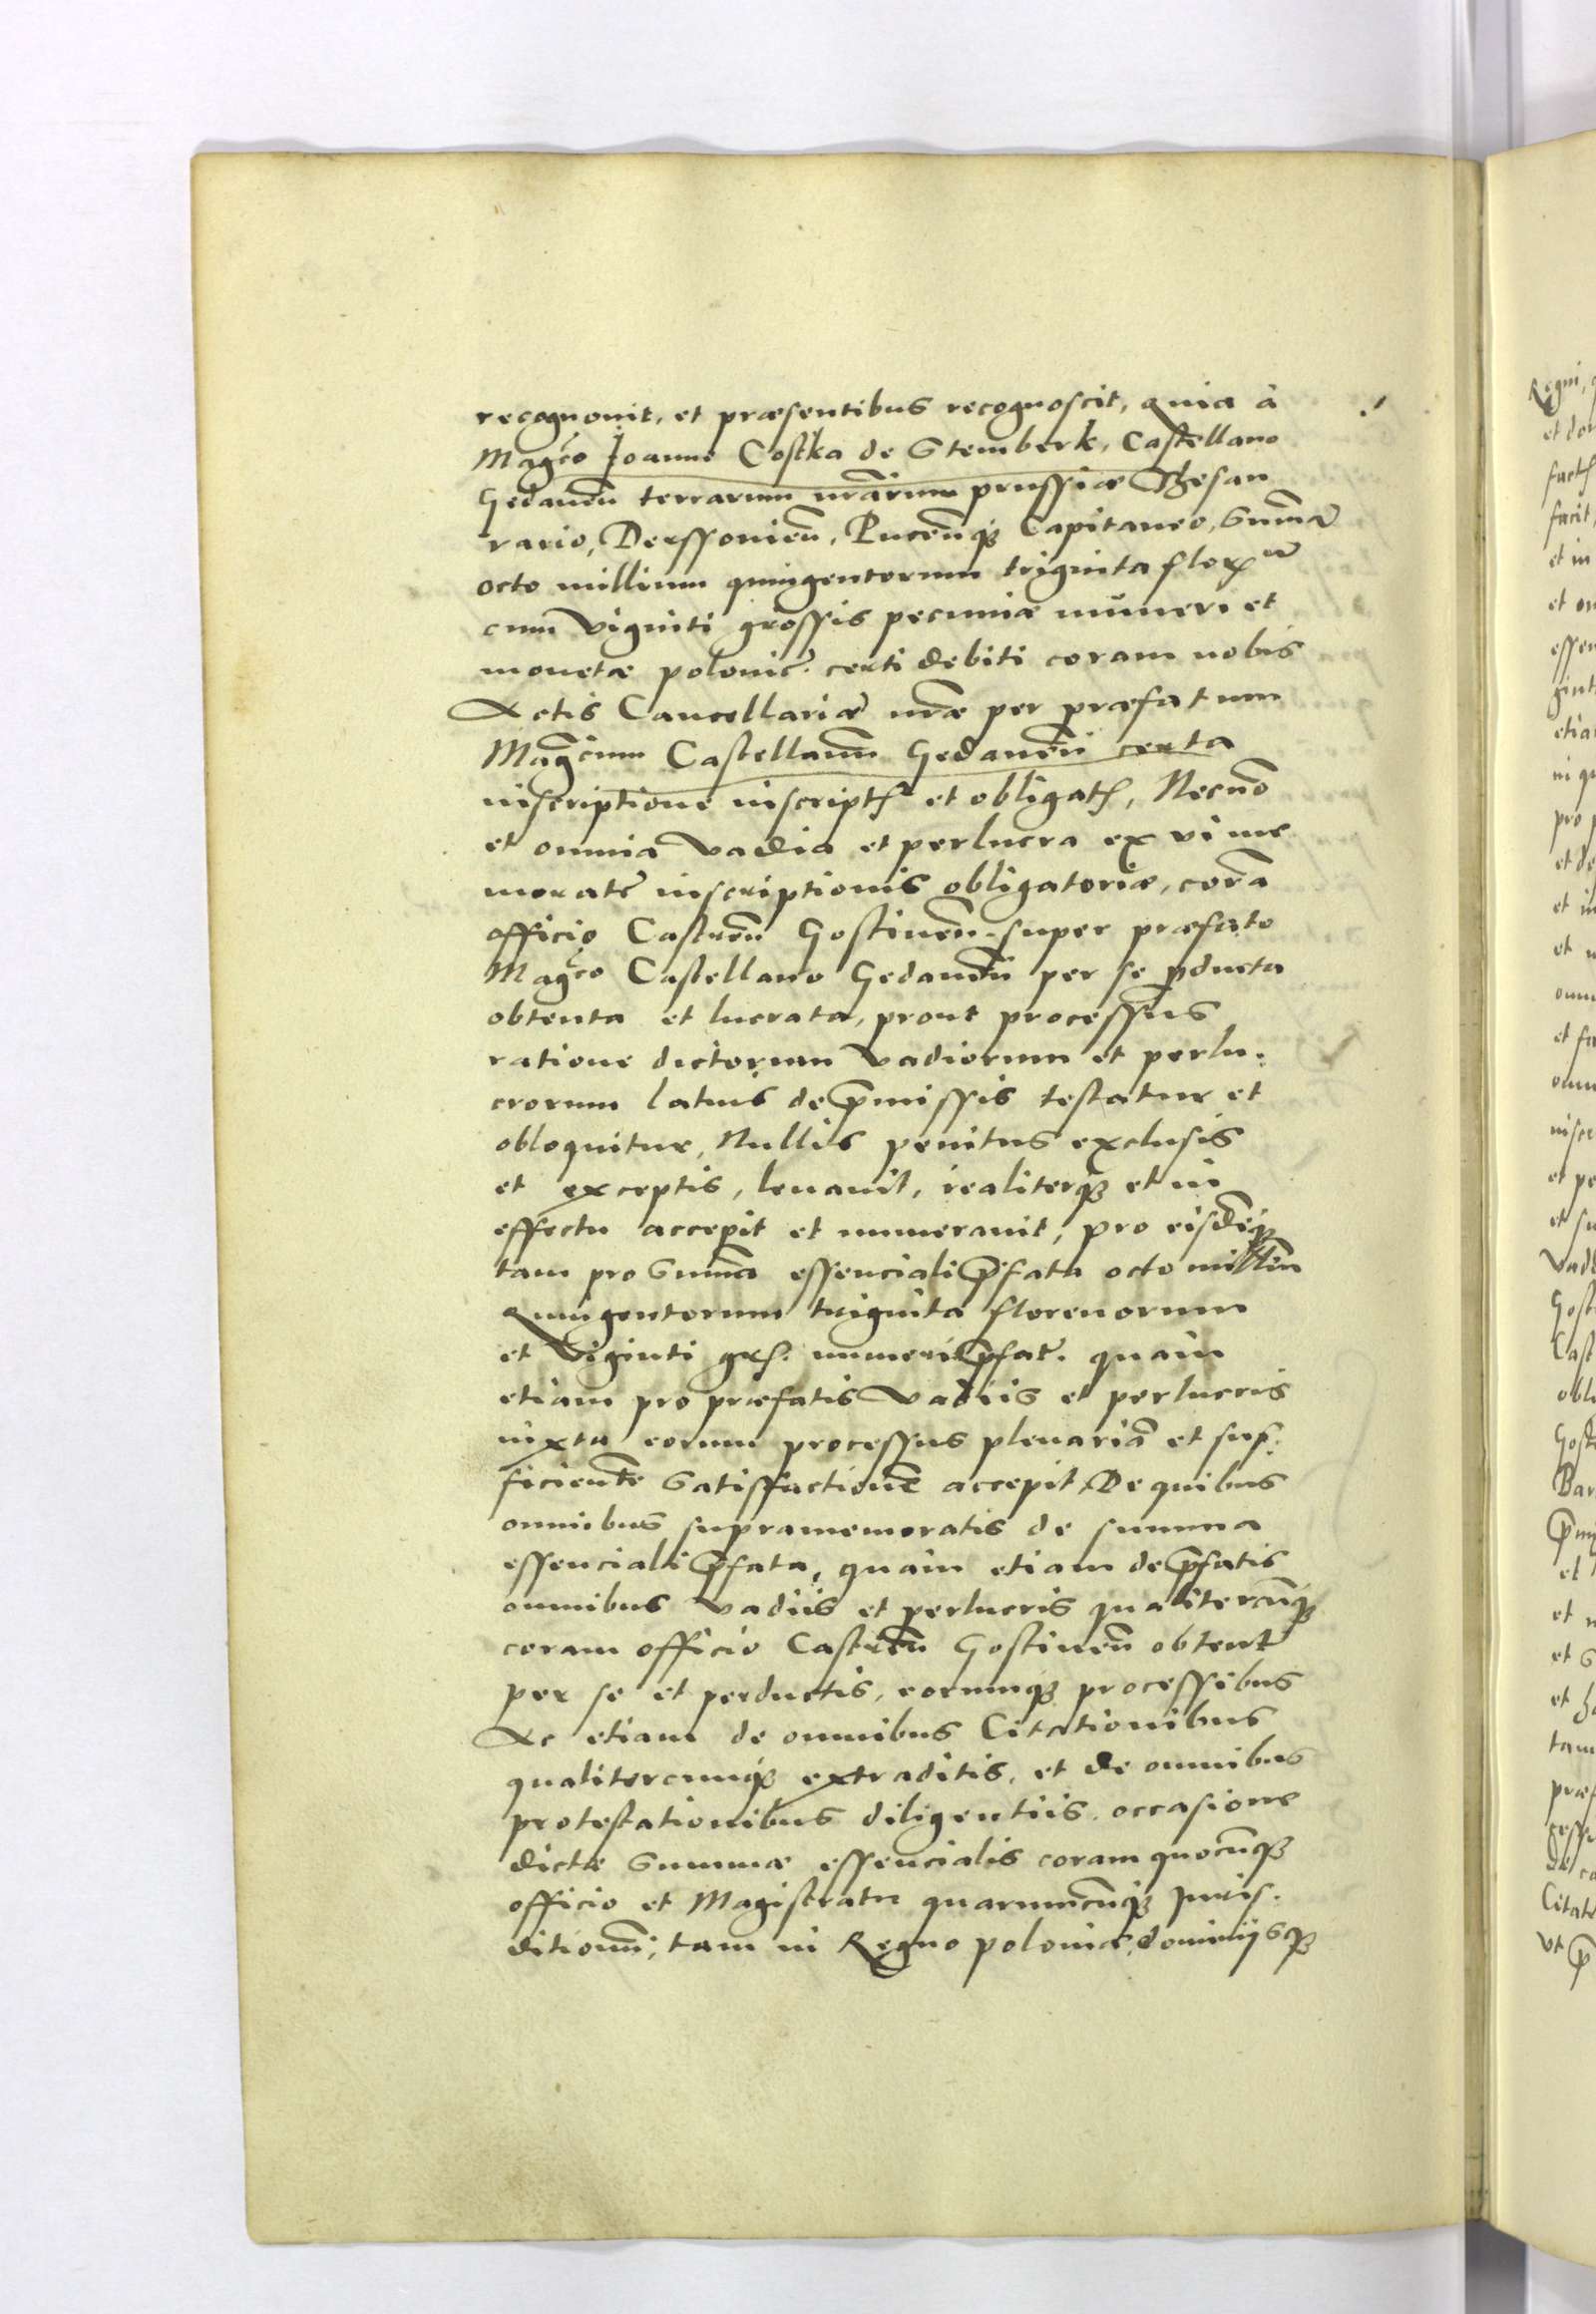 recognouit, et præsentibus recognoscit, quia à
Mag͡co Joanne Costka de Stemberk, Castellano
Gedanen̄ terrarum nr̄arum prussiæ Thesau
rario, Derssouien̄, Pucen̄q3 Capitaneo, Sum̄ā
octo millium quingentorum triginta flor
cum viginti grossis pecuniæ númeri et
monetæ polonic. certi debiti coram nobis
Actis Cancellariæ nr̄æ per præfatum
Mag͡cum Castellanū Gedanen̄ certa
inscriptione inscript et obligat, Necnō
et omnia vadia et perlucra ex vi me
morate inscriptionis obligatoriæ, corā
officio Castren̄ Gostinen̄ super præfato
Mag͡co Castellano Gedanen̄ per se pducta
obtenta et lucrata, prout processus
ratione dictorum vadiorum et perlu:
crorum latius de pmissis testatur et
obloquitur, Nullis penitus exclusis
et exceptis, leuauit, realiterq3 et in
effectu accepit et numerauit, pro eisdēq3
tam pro Sum̄a essenciali pfata octo milliū
Quingentorum triginta florenorum
et Viginti grs. numeri pfat. quàm
etiam pro præfatis vadiis et perlucris
iuxta eorum processus plenariā et suf:
ficientē Satisfactionē accepit, De quibus
omnibus supramemoratis de summa
essenciali pfata, quàm etiam de pfatis
omnibus vadiis et perlucris qualitercūq3
coram officio Castren̄ Gostinen̄ obtent
per se et perductis, eorumq3 processibus
Ac etiam de omnibus Citationibus
qualitercumq3 extraditis, et de omnibus
protestationibus diligentiis occasione
dictæ Summæ essencialis coram quocūq3
officio et Magistratu quarumcūq3 Juris.
ditionū, tam in Regno poloniæ, dominijsq3